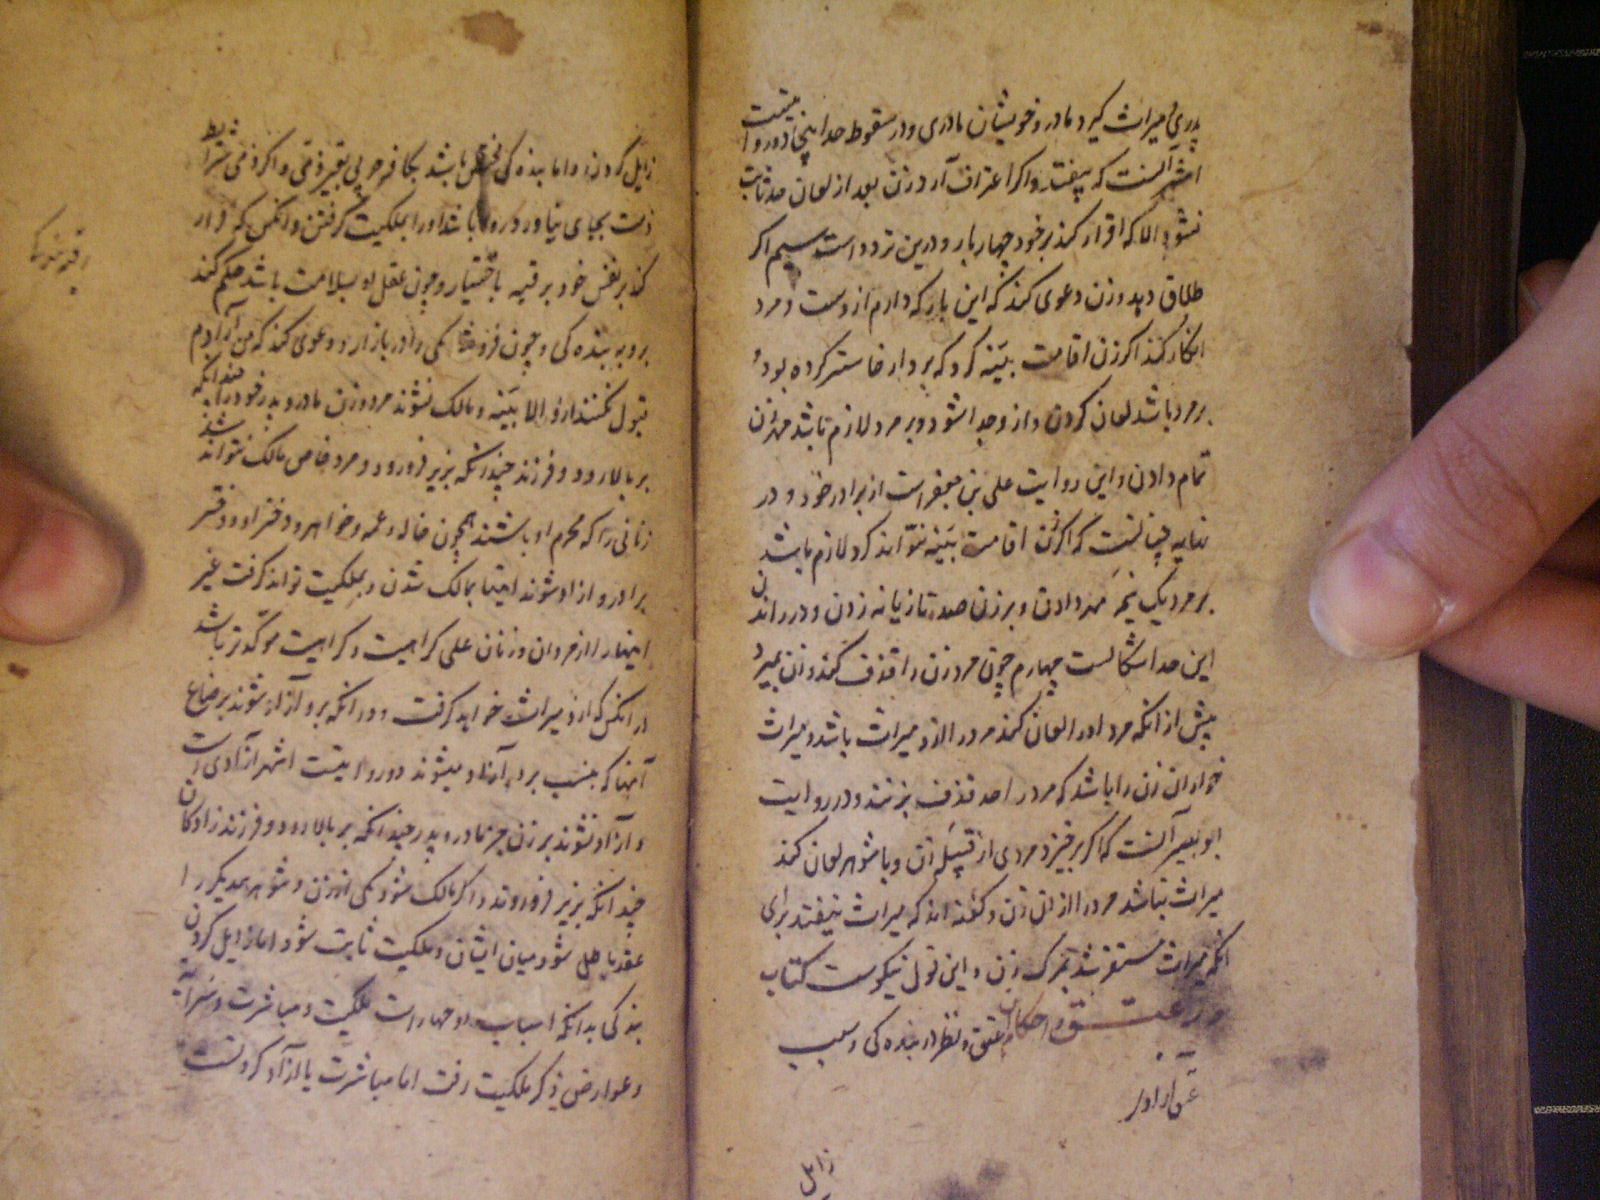 پدری میراث گیرد مادر و خویشان مادری و در سقوط حد اینجا دو روایتست
اشهر آنست که بیفتد و اگر اعتراف آرد زن بعد از لعان حد ثابت
نشود الا که اقرار کند بر خود چهار بار و درین تردد است سیم اگر
طلاق دهد و زن دعوی کند که این بار که دارم از وست و مرد
انکار کند اگر زن اقامت بینه کرد که پرده فراستر کرده بود
بر مرد باشد لعان کردن و از و جدا شود و بر مرد لازم باشد مهر زن
تمام دادن و این روایت علی بن جعفر است از برادر خود و در
نهایه چنانست که اگر زن اقامت بینه نتواند کرد لازم باشد
بر مرد یک نیمه مهر دادن و بر زن صد تازیانه زدن و در راندن
این حد اشکالست چهارم چون مرد زن را قذف کند و زن بمیرد
پیش از آنکه مرد او را لعان کند مرد را از و میراث باشد و میراث
خواران زن را باشد که مرد را حد قذف بزنند و در روایت
ابو بصیر آنست که اگر برخیزد مردی از قبیله زن و با شوهر لعان کند
میراث نباشد مرد را از ان زن و گفته اند که میراث نیفتد برای
آنکه میراث مستقر شد بمرگ زن و این قول نیکوست کتاب
در عتق و احکام عتق و نظر در بنده کی و سبب
عتق آزادی
زایل
زایل کردن و اما بنده کی مختص باشد بکافر حربی بغیر ذمی و اگر ذمی شرایط
ذمت بجای نیاورد روا باشد او را بملکیت گرفتن و آنکس که اقرار
کند بر نفس خود برقیه باختیار و چون عقل او بسلامت باشد حکم کنند
برو به بنده کی و چون فروشند یکی را در بازار و دعوی کند که من آزادم
قبول نکنند از و الا ببینه و مالک نشوند مرد و زن مادر و پدر خود را چندانکه
بر بالا رود و فرزند چندانکه بزیر فرو رود و مرد خاص مالک نتواند شد
زنانی را که محرم او باشند همچون خاله و عمه و خواهر و دختر او و دختر
برادر و آزاد شوند اینها بمالک شدن و بملکیت تواند گرفت غیر
اینها را از مردان و زنان علی کراهیت و کراهیت موکدتر باشد
در آنکس که ازو میراث خواهد گرفت و در آنکه برو آزاد شوند برضاع
آنها که بنسب برو آزاد میشوند دو روایتست اشهر آزادی است
و آزاد نشوند بر زن جز مادر و پدر چندانکه بر بالا رود و فرزند زادگان
چندانکه بزیر فرو روند و اگر مالک شود یکی از زن و شوهر همدیگر را
عقد باطل شود میان ایشان و ملکیت ثابت شود اما زایل کردن
بندگی بدانکه اسباب او چهار است ملکیت و مباشرت و سرایة
و عوارض ذکر ملکیت رفت اما مباشرت یا آزاد کردنست